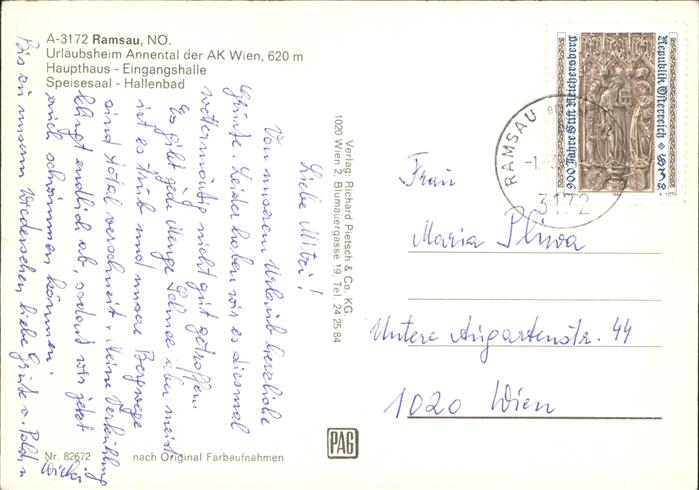 A-3172 Ramsau, NÖ.
Urlaubsheim Annental der AK Wien, 620 m
Haupthaus - Eingangshalle
Speisesaal - Hallenbad
Liebe Mitzi!
Von unserem Urlaub herzliche
Grüße. Leider haben wir es diesmal
wettermäßig nicht gut getroffen.
Es gibt jede Menge Schnee aber meist
ist es trüb und unsere Bergwege
sind total verschneit. Meine Verkühlung
klingt endlich ab, sodaß wir jetzt
auch schwimmen können.
Bis zu unserem Wiedersehen liebe Grüße v. Poldi u
Verlag: Richard Pietsch & Co. KG.
1020 Wien 2, Blumauergasse 19, Tel. 24 25 84
Republik Österreich S 3 50
900 Jahre Stift Reichersberg
RAMSAU
3172
Frau
Maria Pliwa
Untere Augartenstr. 44
1020 Wien
PAG
Nr. 82672 nach Original Farbaufnahmen